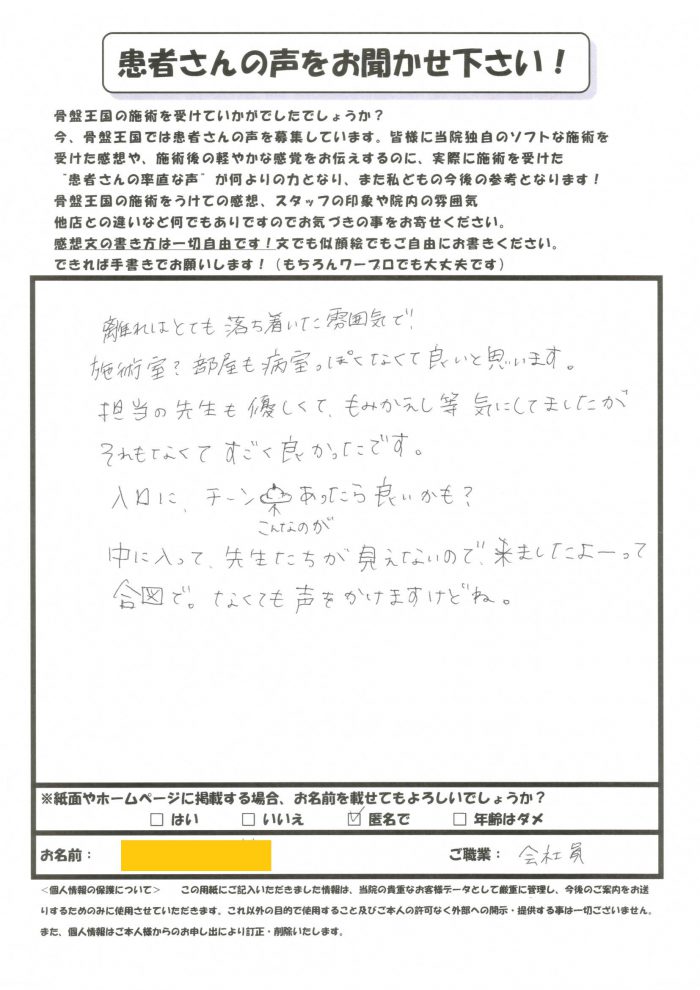 患者さんの声をお聞かせ下さい！
骨盤王国の施術を受けていかがでしたでしょうか？
今、骨盤王国では患者さんの声を募集しています。皆様に当院独自のソフトな施術を
受けた感想や、施術後の軽やかな感覚をお伝えするのに、実際に施術を受けた
“患者さんの率直な声”が何よりの力となり、また私どもの今後の参考となります！
骨盤王国の施術をうけての感想、スタッフの印象や院内の雰囲気
他店との違いなど何でもありですのでお気づきの事をお寄せください。
感想文の書き方は一切自由です！文でも似顔絵でもご自由にお書きください。
できれば手書きでお願いします！（もちろんワープロでも大丈夫です）
離れはとても落ち着いた雰囲気で、
施術室？部屋も病室っぽくなくて良いと思います。
担当の先生も優しくて、もみかえし等気にしてましたが
それもなくてすごく良かったです。
入口に、チーンあったら良いかも？
こんなのが
中に入って、先生たちが見えないので、来ましたよーって
合図で。なくても声をかけますけどね。
※紙面やホームページに掲載する場合、お名前を載せてもよろしいでしょうか？
□ はい □ いいえ ☑ 匿名で □ 年齢はダメ
お名前： ご職業： 会社員
＜個人情報の保護について＞ この用紙にご記入いただきました情報は、当院の貴重なお客様データとして厳重に管理し、今後のご案内をお送
りするためのみに使用させていただきます。これ以外の目的で使用すること及びご本人の許可なく外部への開示・提供する事は一切ございません。
また、個人情報はご本人様からのお申し出により訂正・削除いたします。